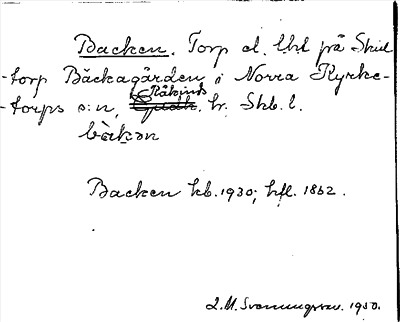 Backen. Torp el. lht på Skat-
torp Bäckagården i Norra Kyrke-
torps s:n, Kåkinds hr. Skb. l.
bàkən
Backen kb. 1930; hfl. 1862.
L.M. Svenungsson. 1950.